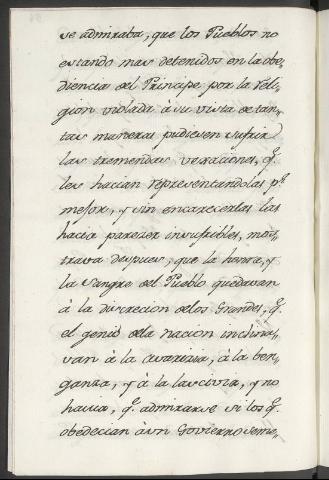 se admiraba, que los Pueblos no
estando mas detenidos en la obe„
diencia del Principe por la Reli„
gion violada à su vista de tan„
tas maneras pudiesen sufrir
las tremendas vexaciones, q.
les hacian representandolas p.r
mejor, y sin encarecerlas las
hacia parecer insufribles, mos„
trava despues, que la honra, y
la Sangre del Pueblo quedavan
à la discrecion delos Grandes, q.
el genio dela nacion inclina„
van à la avaricia, à la ben„
ganza, y à la lascivia, y no
havia, q. admirarse si los q.
obedecian àun Govierno seme„